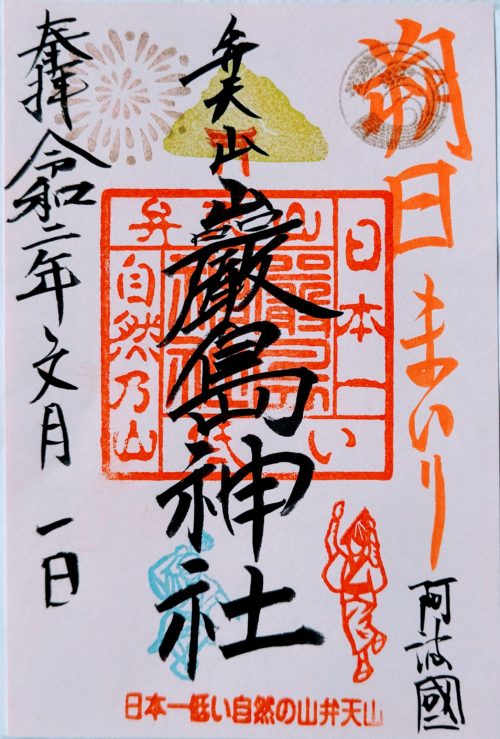 朔日まいり
阿波國
弁天山
巌島神社
奉拝
令和二年文月 一日
日本一低い
弁天山
自然乃山
日本一低い自然の山弁天山